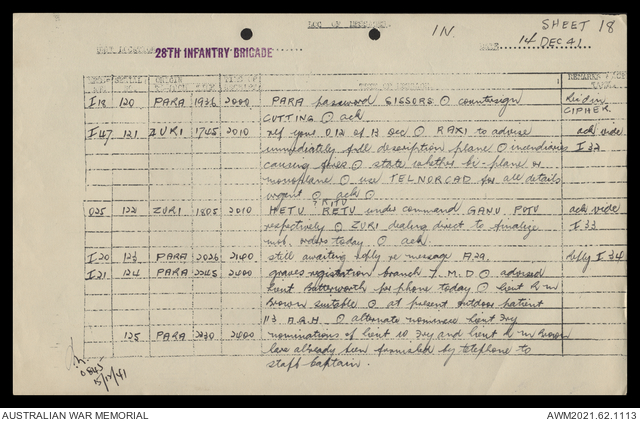 LOG OF MESSAGES
IN. SHEET 18
28TH INFANTRY BRIGADE DATE 14 DEC 41
I18 120 PARA 1936 2000 PARA password SISSORS ⊙ countersign
CUTTING ⊙ ack CIPHER
I47 121 ZURI 1745 2010 ref your 012 of 13 Dec ⊙ RAXI to advise ack vide
immediately full description plane ⊙ incendiaries I 32
causing fires ⊙ state whether bi-plane or
monoplane ⊙ use TELNORCAD for all details
urgent ⊙ ack ⊙
025 122 ZURI 1805 2010 HETU RETU under command GANU POTU ack vide
respectively ⊙ ZURI dealing direct to finalize I 33
mob. orders today ⊙ ack
I20 123 PARA 2026 2100 still awaiting reply re message A29. Reply I 34
I21 124 PARA 2045 2400 graves registration branch 7 M.D ⊙ advised
Lieut Butterworth per phone today ⊙ Lieut
Brown suitable ⊙ at present outdoor patient
113 A.G.H. ⊙ alternate nominee Lieut Ivy
125 PARA 2230 2400 nominations of Lieut Ivy and Lieut Brown
have already been furnished by telephone to
staff Captain.
0845
15/12/41
AUSTRALIAN WAR MEMORIAL AWM2021.62.1113